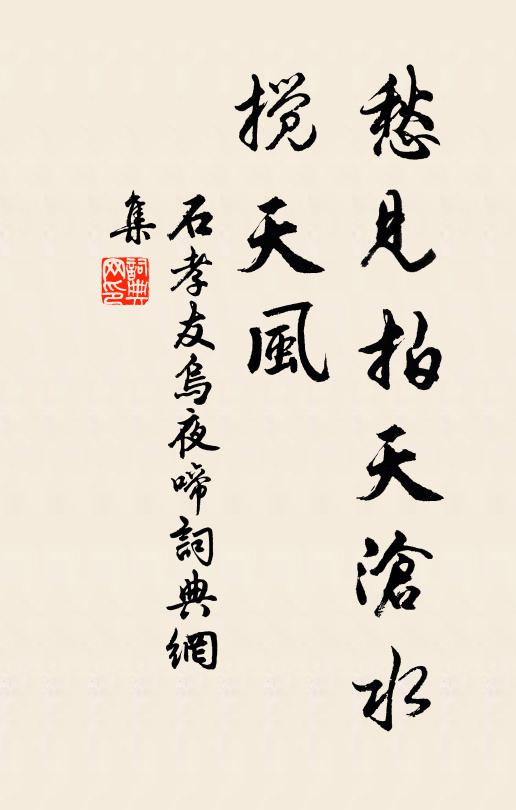 愁見拍天滄水
攪天風
石孝友烏夜啼詞典網
集
詞典
网印